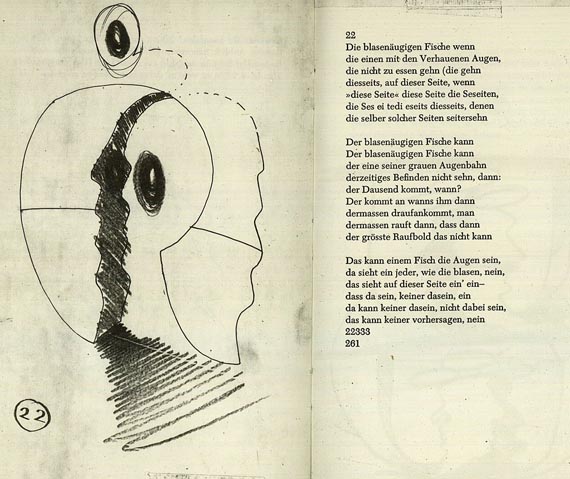 22
22
Die blasenäugigen Fische wenn
die einen mit den Verhauenen Augen,
die nicht zu essen gehn (die gehn
diesseits, auf dieser Seite, wenn
»diese Seite« diese Seite die Seseiten,
die Ses ei tedi eseits diesseits, denen
die selber solcher Seiten seitersehn

Der blasenäugigen Fische kann
Der blasenäugigen Fische kann
der eine seiner grauen Augenbahn
derzeitiges Befinden nicht sehn, dann:
der Dausend kommt, wann?
Der kommt an wanns ihm dann
dermassen draufankommt, man
dermassen rauft dann, dass dann
der grösste Raufbold das nicht kann

Das kann einem Fisch die Augen sein,
da sieht ein jeder, wie die blasen, nein,
das sieht auf dieser Seite ein' ein–
dass da sein, keiner dasein, ein
da kann keiner dasein, nicht dabei sein,
das kann keiner vorhersagen, nein
22333
261